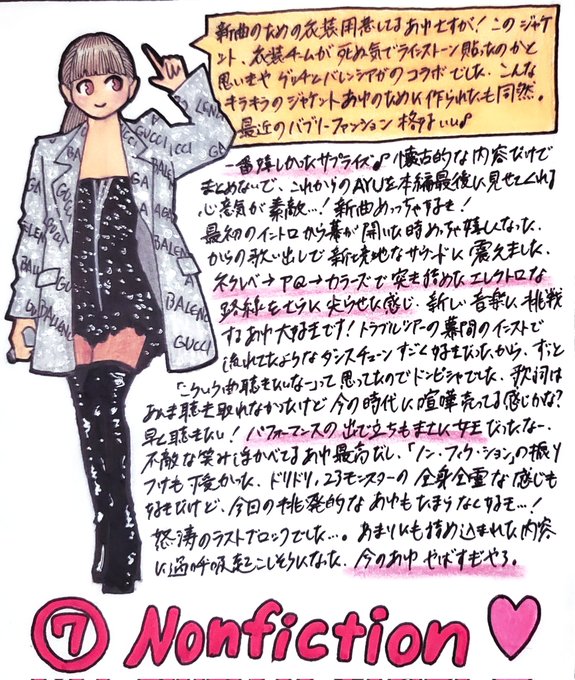 新曲のための衣装用意してるあゆですが！このジャケ
ント、衣装チームが死ぬ気でラインストーン貼ったのかと
思いきや グッチとバレンシアガのコラボでした、こんな
キラキラのジャケットあゆのために作られたも同然。
最近のバブリーファッション 格好いい♪
一番嬉しかったサプライズ♪ 懐古的な内容だけで
まとめないで、これからのAYUを本編最後に見せてくれる
心意気が素敵…！新曲めっちゃ好き！
最初のイントロから幕が開いた時めっちゃ嬉しくなった、
からの歌い出しで新境地なサウンドに震えました、
ネクレベ→アロ→カラーズで突き詰めたエレクトロな
路線をさらに尖らせた感じ、新しい音楽に挑戦
するあゆ大好きです！トラブルツアーの幕間のインストで
流れてたようなダンスチューンすごく好きだったから、ずっと
「こういう曲聴きたいな〜」って思ってたのでドンピシャでした、歌詞は
あんま聴き取れなかったけど今の時代に喧嘩売ってる感じかな？
早く聴きたい！パフォーマンスの出で立ちもまさに女王だったなー、
不敵な笑み浮かべてるあゆ最高だし、「ノン・フィク・ション」の振り
つけも可愛かった、ドリドリ、23モンスターの全身全霊な感じも
好きだけど、今日の挑発的なあゆもたまらなく好き…！
怒涛のラストブロックでした…。あまりにも詰め込まれた内容
に過呼吸起こしそうになった、今のあゆ やばすぎやろ。
⑦ Nonfiction
BALENC
GUCCI
BALENC
GUCCI
GUCCI